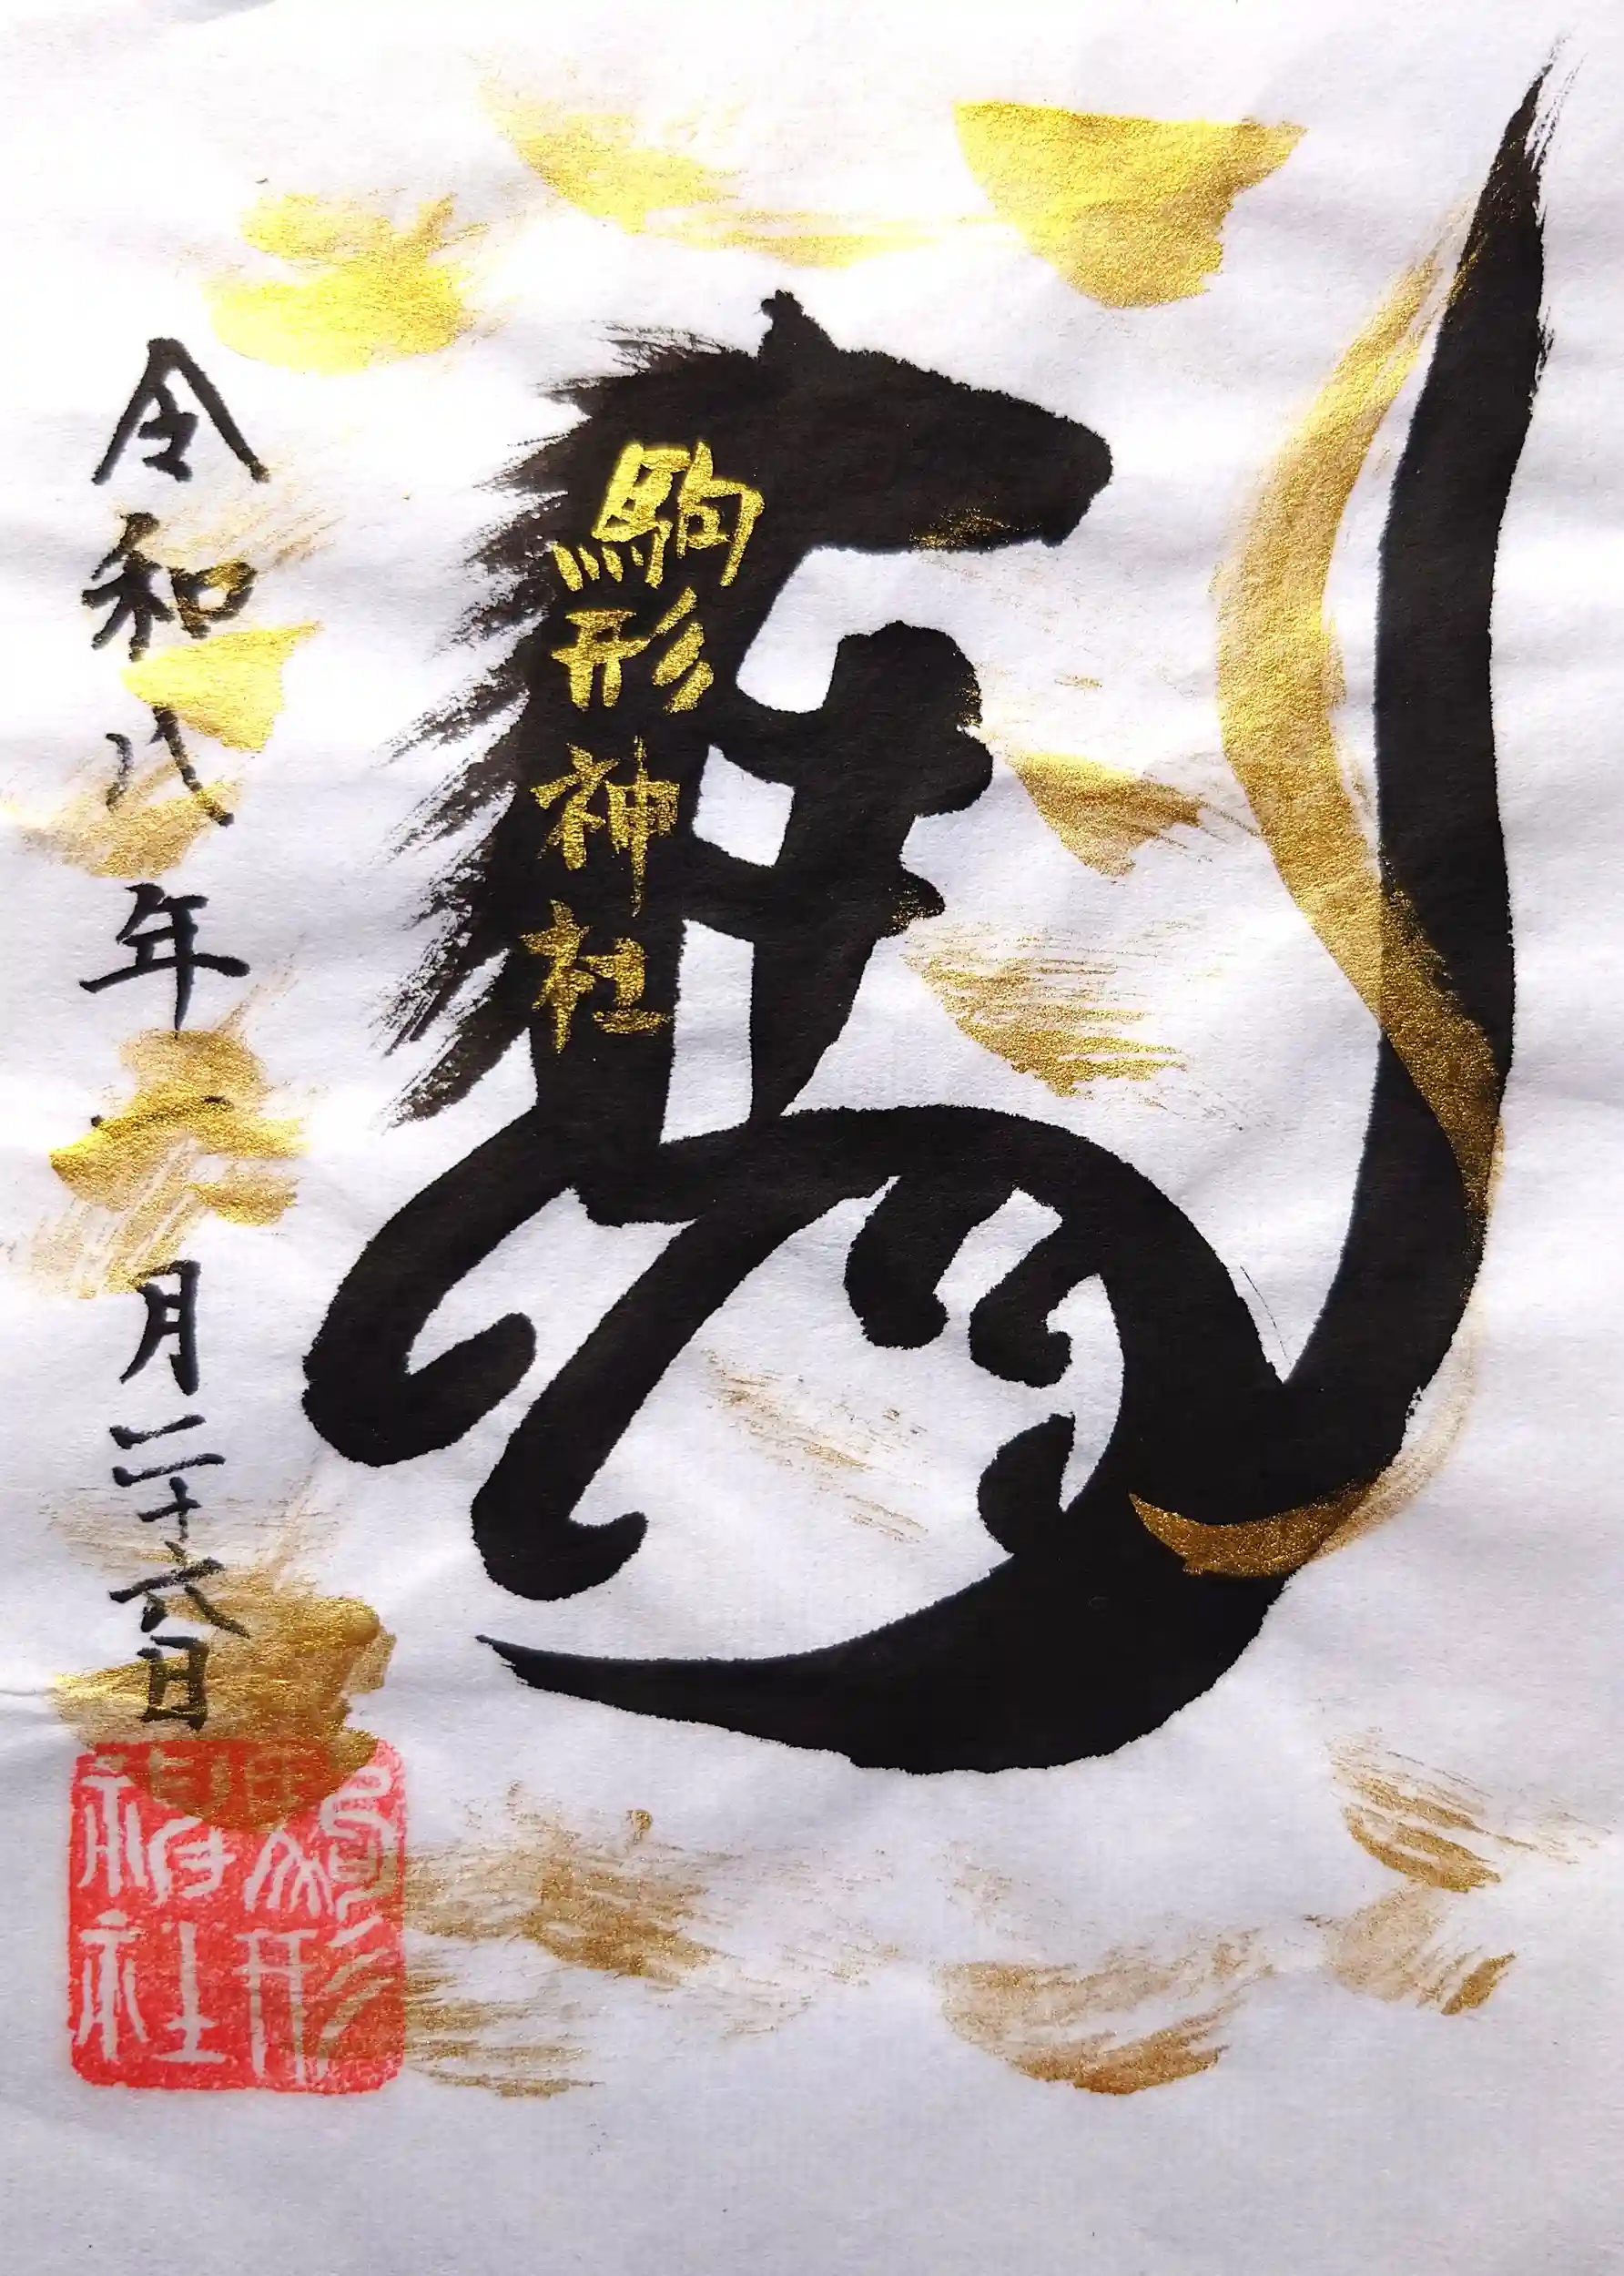 駒形神社
令和八年一月二十六日
駒形
神社